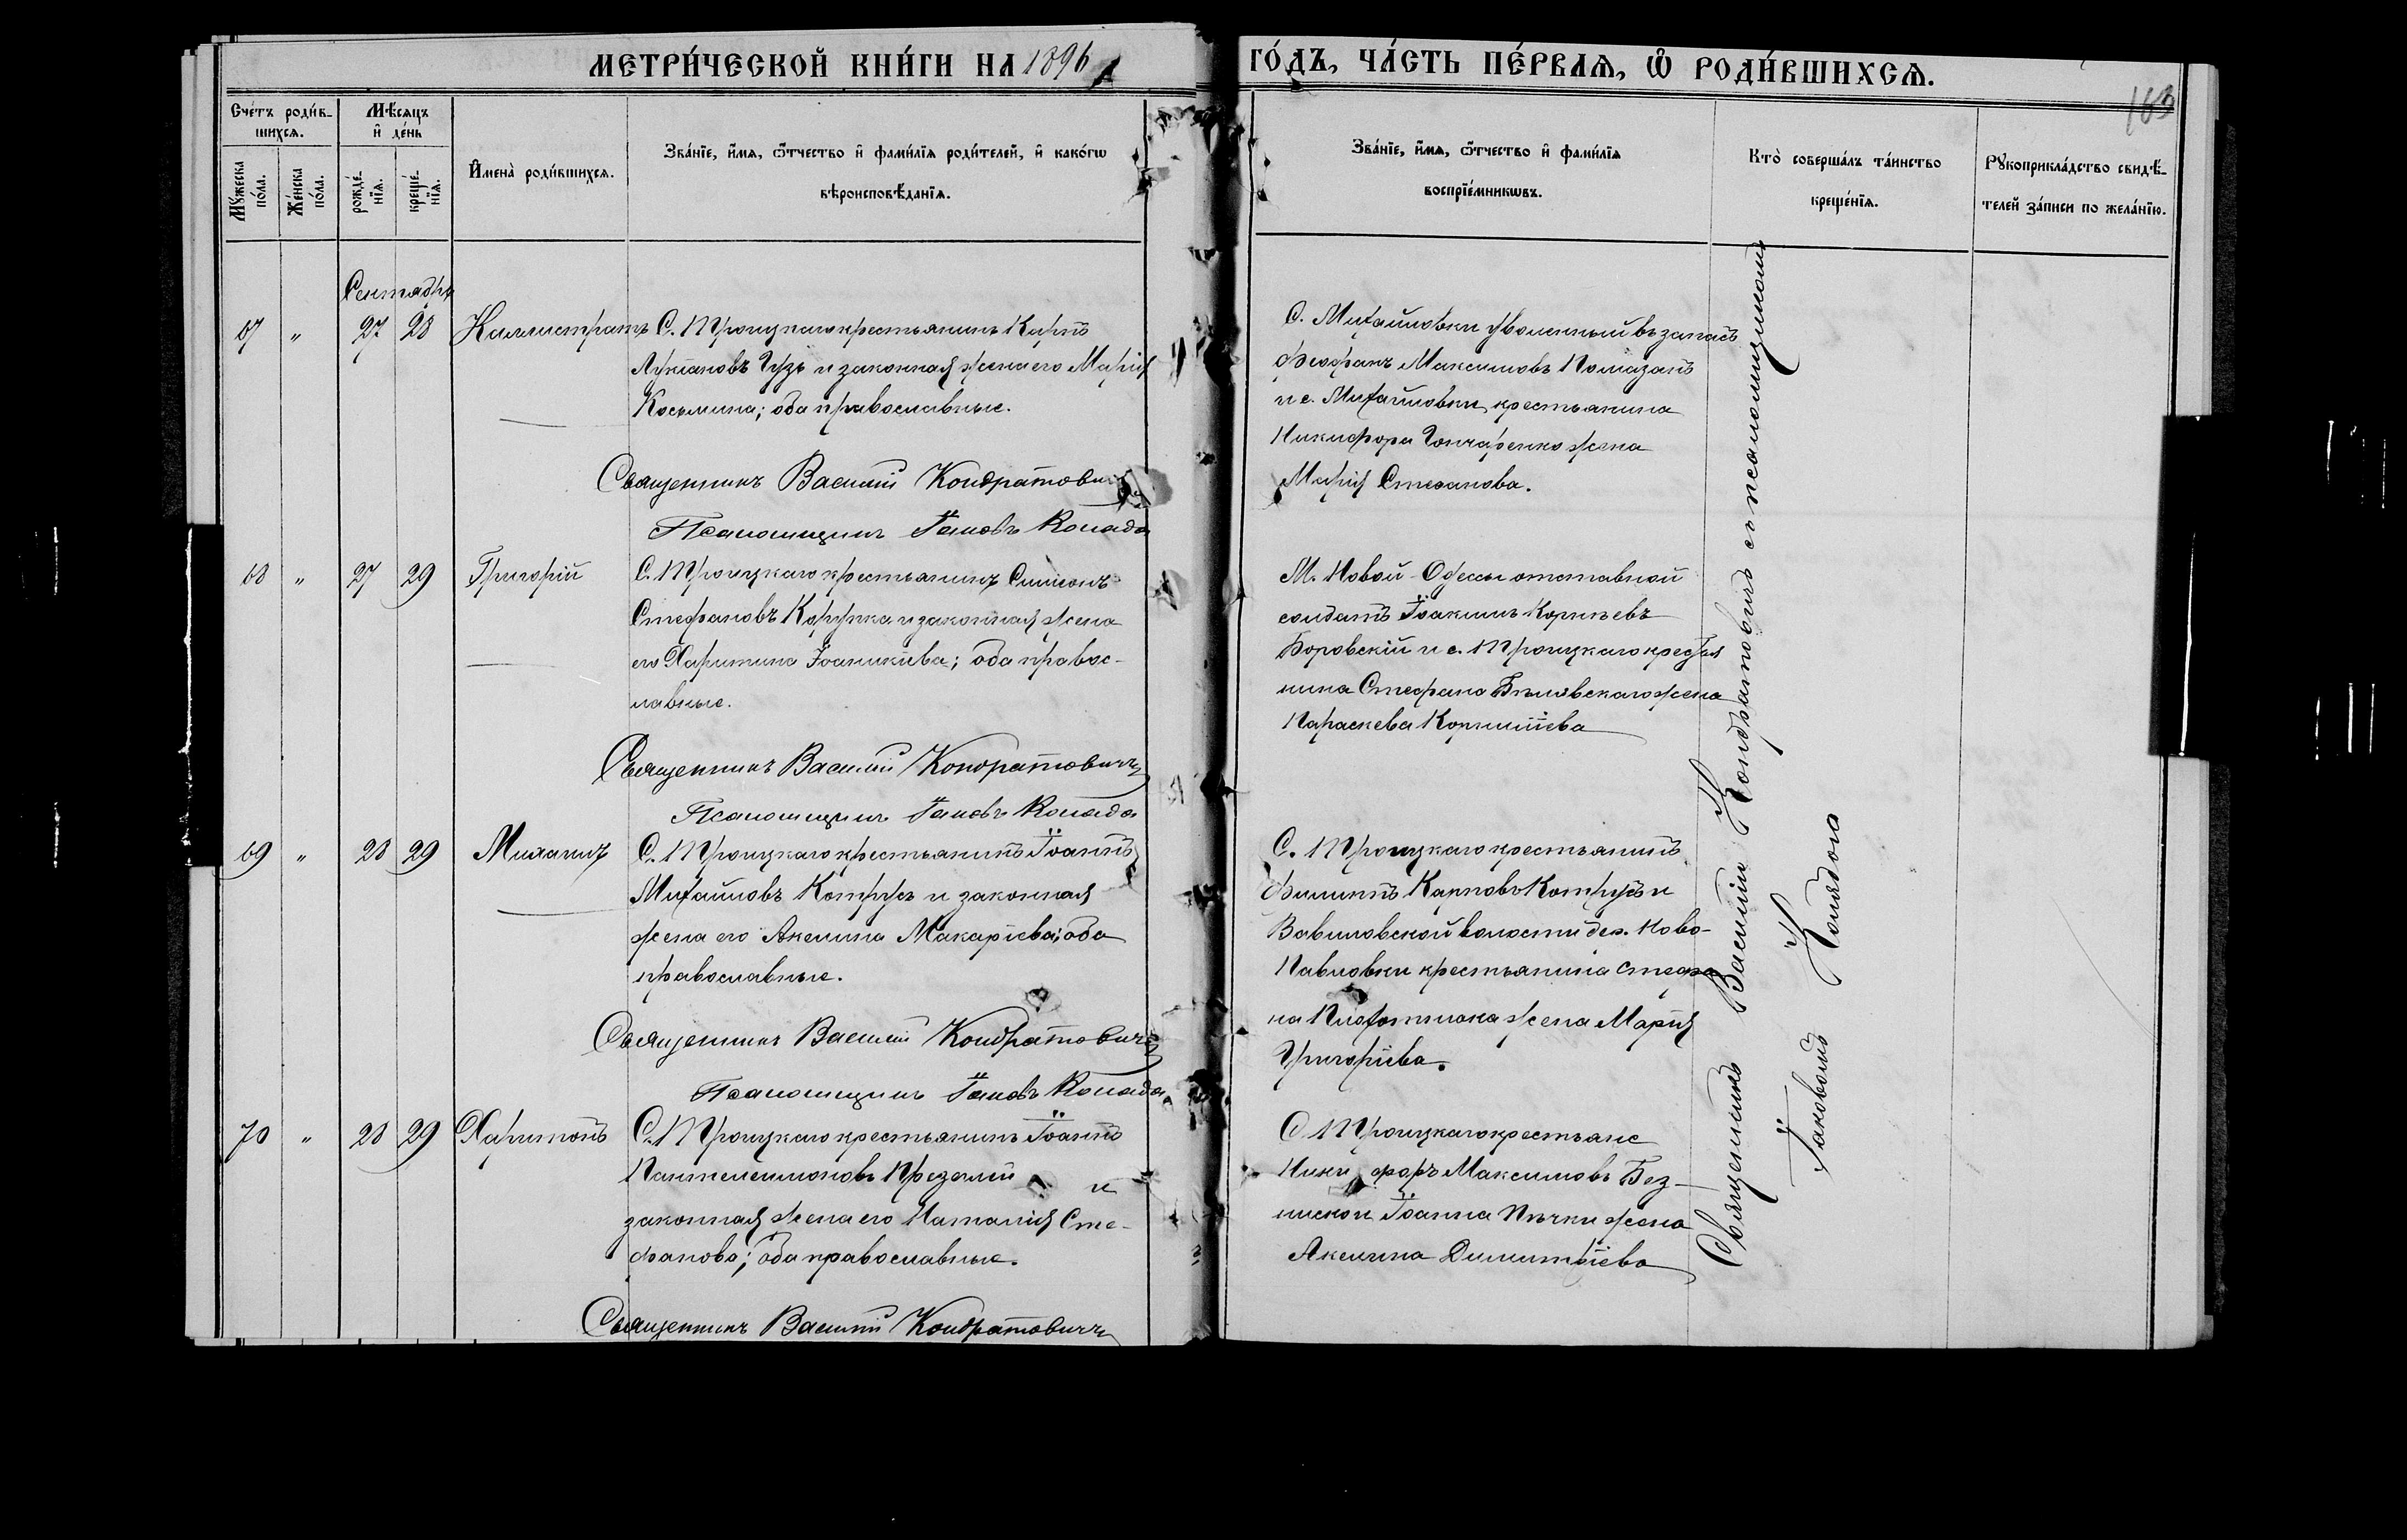 МЕТРИ́ЧЕСКОЙ КНИ́ГИ НА 1896
ГО́ДЪ, ЧА́СТЬ ПЕ́РВАѦ, Ѿ РОДИ́ВШИХСѦ.
163
Сче́тъ роди́в-
шихсѧ.
Мѣсѧцъ
и҆ де́нь
Мꙋ́жеска
по́ла.
Же́нска
по́ла.
рожде́-
нїѧ.
креще́-
нїѧ.
И҆мена̀ роди́вшихсѧ.
Зва́нїе, и҆́мѧ, ѻ҆́тчество и҆ фами́лїѧ роди́телей, и҆ како́гѡ
вѣроисповѣ́данїѧ.
Зва́нїе, и҆́мѧ, ѻ҆́тчество и҆ фами́лїѧ
воспрїе́мникѡвъ.
Кто̀ соверша́лъ та́инство
креще́нїѧ.
Рꙋкоприкла́дство свидѣ́-
телей за́писи по жела́нїю.
Сентября
67 " 27 28 Каллистратъ С. Троицкаго крестьянинъ Карпъ
Лукіановъ Гузь и законная жена его Марія
Косьмина; оба православные.
Священникъ Василій Кондратовичъ
Псаломщикъ Іаковъ Коляда
С. Михайловки уволенный въ запасъ
Феофанъ Максимовъ Помазанъ
и с. Михайловки крестьянина
Никифора Гончаренко жена
Марія Стефанова.
68 " 27 29 Григорій С. Троицкаго крестьянинъ Симеонъ
Стефановъ и законная жена
его Харитина Іоанникіева; оба правос-
лавные.
Священникъ Василій Кондратовичъ
Псаломщикъ Іаковъ Коляда
М. Новой-Одессы отставной
солдатъ Іоакимъ Корнѣевъ
Боровскій и с. Троицкаго крестья
нина Стефана Бѣлявскаго жена
Параскева Корниліева
69 " 28 29 Михаилъ С. Троицкаго крестьянинъ Іоаннъ
Михайловъ Котрусъ и законная
жена его Акелина Макаріева; оба
православные.
Священникъ Василій Кондратовичъ
Псаломщикъ Іаковъ Коляда
С. Троицкаго крестьянинъ
Филиппъ Карповъ Котрусъ и
Вавиловской волости дер. Ново-
Павловки крестьянина Стефа
на жена Марія
Григоріева.
70 " 28 29 Харитонъ С. Троицкаго крестьянинъ Іоаннъ
Пантелеимоновъ и
законная жена его Наталія Сте-
фанова; оба православные.
Священникъ Василій Кондратовичъ
С. Троицкаго крестьяне
Никифоръ Максимовъ Без-
и Іоанна жена
Акелина Димитріева
Священникъ Василій Кондратовичъ съ псаломщикомъ
Іаковомъ Колядою